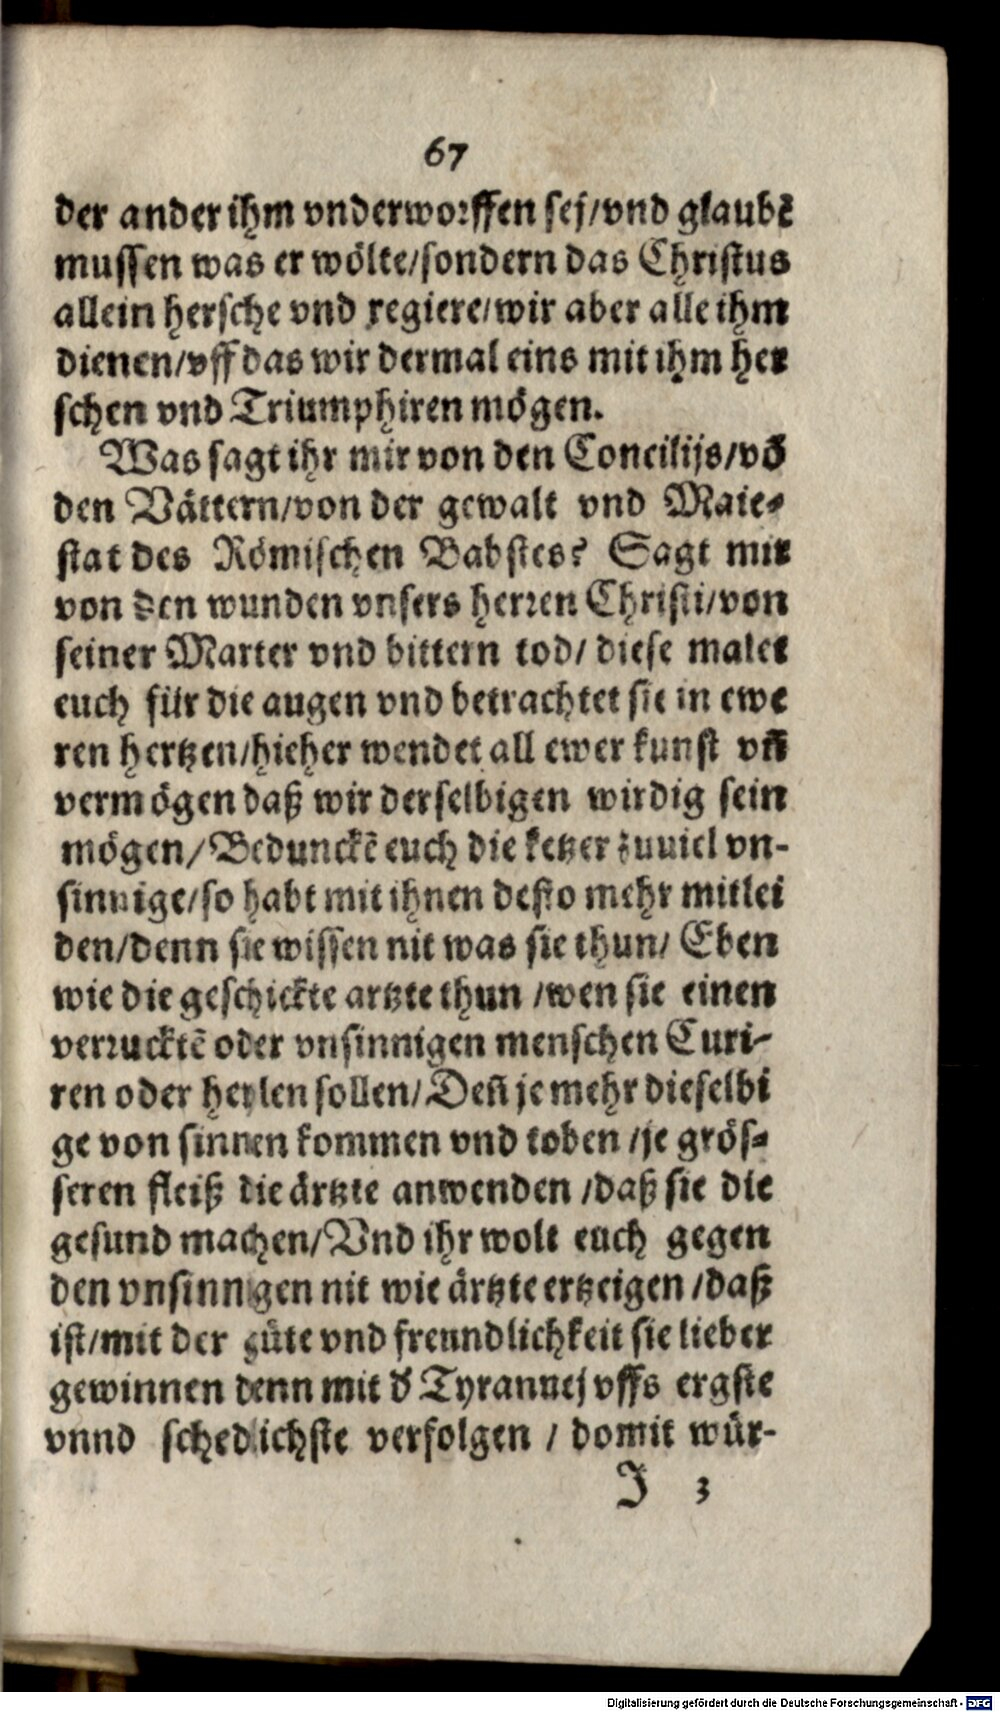 67
der ander ihm vnderworffen sej/vnd glaubē
mussen was er wölte/sondern das Christus
allein hersche vnd regiere/wir aber alle ihm
dienen/vff das wir dermal eins mit ihm her
schen vnd Triumphiren mögen.
Was sagt ihr mir von den Concilijs/vō
den Vättern/von der gewalt vnd Maie-
stat des Römischen Babstes? Sagt mir
von den wunden vnsers herren Christi/von
seiner Marter vnd bittern tod/ diese malet
euch für die augen vnd betrachtet sie in ewe
ren hertzen/hieher wendet all ewer kunst vñ
vermögen daß wir derselbigen wirdig sein
mögen/Bedunckē euch die ketzer zuuiel vn-
sinnige/so habt mit ihnen desto mehr mitlei
den/denn sie wissen nit was sie thun/ Eben
wie die geschickte artzte thun /wen sie einen
verrucktē oder vnsinnigen menschen Curi-
ren oder heylen sollen/Deñ je mehr dieselbi
ge von sinnen kommen vnd toben /je grös-
seren fleiß die ärtzte anwenden /daß sie die
gesund machen/Vnd ihr wolt euch gegen
den vnsinnigen nit wie ärtzte ertzeigen /daß
ist/mit der güte vnd freundlichkeit sie lieber
gewinnen denn mit d' Tyrannej vffs ergste
vnnd schedlichste verfolgen / domit wür-
J 3
Digitalisierung gefördert durch die Deutsche Forschungsgemeinschaft - DFG